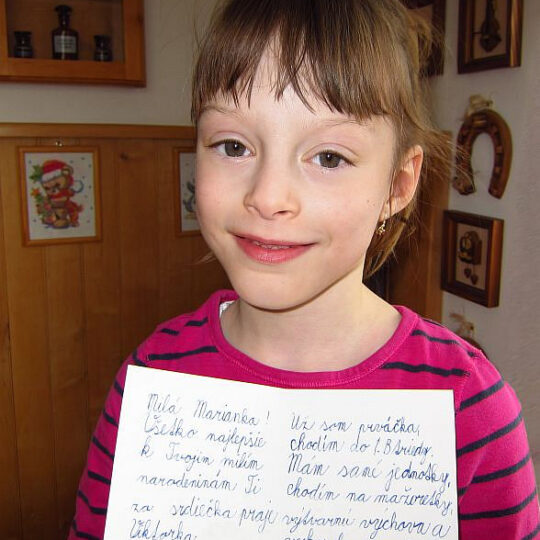 Milá Marianka!
Všetko najlepšie
k Tvojim milím
narodeninám Ti
zo srdiečka praje
Viktorka
Už som prváčka,
chodím do 1.B triedy.
Mám samé jednotky,
chodím na mažoretky,
výtvarnú výchovu a